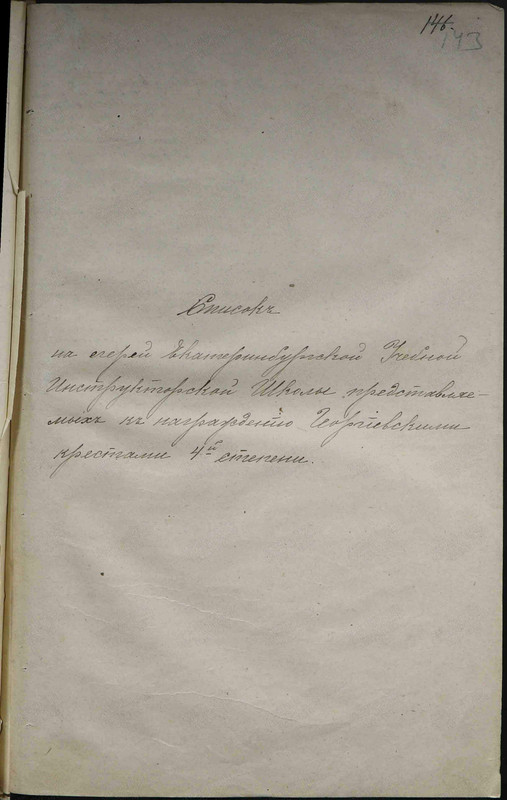 146.
143
Списокъ
на егерей Екатеринбургской Учебной
Инструкторской Школы представляе-
мыхъ къ награжденію Георгіевскими
крестами 4й степени.